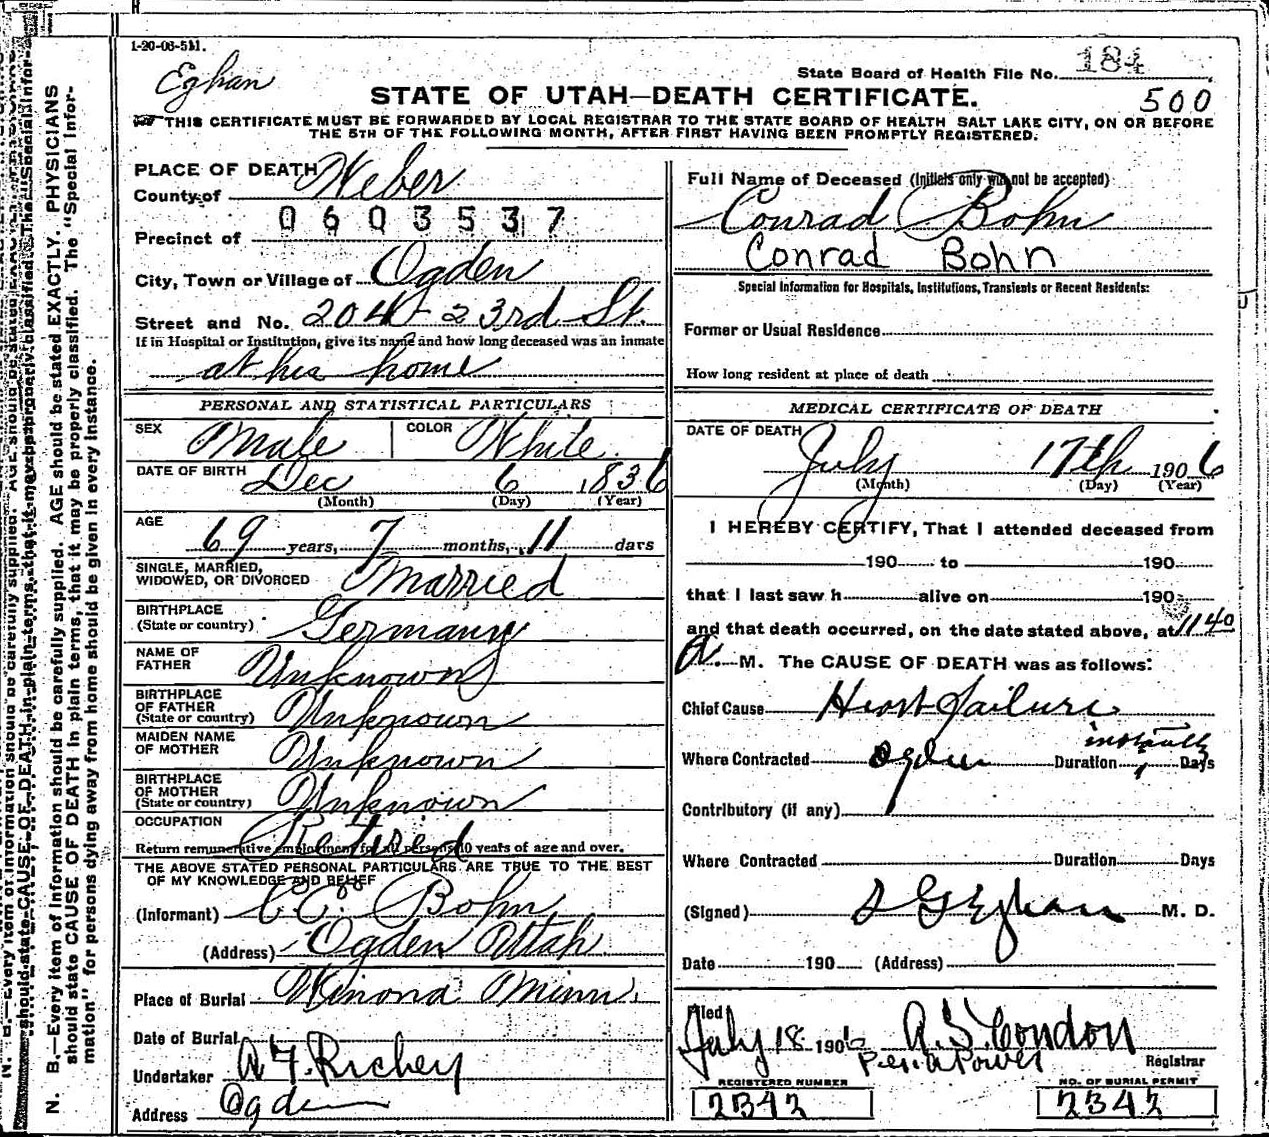 1-20-06-5M.
Eghan
State Board of Health File No. 184
STATE OF UTAH—DEATH CERTIFICATE.
500
THIS CERTIFICATE MUST BE FORWARDED BY LOCAL REGISTRAR TO THE STATE BOARD OF HEALTH SALT LAKE CITY, ON OR BEFORE
THE 5TH OF THE FOLLOWING MONTH, AFTER FIRST HAVING BEEN PROMPTLY REGISTERED.
PLACE OF DEATH
County of Weber
0603537
Precinct of
City, Town or Village of Ogden
Street and No. 204 23rd St.
If in Hospital or Institution, give its name and how long deceased was an inmate
at his home
PERSONAL AND STATISTICAL PARTICULARS
SEX Male COLOR White
DATE OF BIRTH Dec 6 1836
(Month) (Day) (Year)
AGE
69 years, 7 months, 11 days
SINGLE, MARRIED,
WIDOWED, OR DIVORCED Married
BIRTHPLACE
(State or country) Germany
NAME OF
FATHER Unknown
BIRTHPLACE
OF FATHER
(State or country) Unknown
MAIDEN NAME
OF MOTHER Unknown
BIRTHPLACE
OF MOTHER
(State or country) Unknown
OCCUPATION Retired
Return remunerative employment for all persons 10 years of age and over.
THE ABOVE STATED PERSONAL PARTICULARS ARE TRUE TO THE BEST
OF MY KNOWLEDGE AND BELIEF
(Informant) C. C. Bohn
(Address) Ogden Utah
Place of Burial Winona Minn.
Date of Burial
Undertaker A. F. Richey
Address Ogden
Full Name of Deceased (Initials only will not be accepted)
Conrad Bohn
Conrad Bohn
Special Information for Hospitals, Institutions, Transients or Recent Residents:
Former or Usual Residence
How long resident at place of death
MEDICAL CERTIFICATE OF DEATH
DATE OF DEATH
July 17th 1906
(Month) (Day) (Year)
I HEREBY CERTIFY, That I attended deceased from
190 to 190
that I last saw h alive on 190
and that death occurred, on the date stated above, at 11 40
A. M. The CAUSE OF DEATH was as follows:
Chief Cause Heart failure
instantly
Where Contracted Ogden Duration Days
Contributory (if any)
Where Contracted Duration Days
(Signed) Eghan M. D.
Date 190 (Address)
Filed
July 18 1906 A. S. Condon
Per. A Power Registrar
REGISTERED NUMBER
2342
NO. OF BURIAL PERMIT
2342
N. B.—Every item of information should be carefully supplied. AGE should be stated EXACTLY. PHYSICIANS
should state CAUSE OF DEATH in plain terms, that it may be properly classified. The "Special Infor-
mation" for persons dying away from home should be given in every instance.